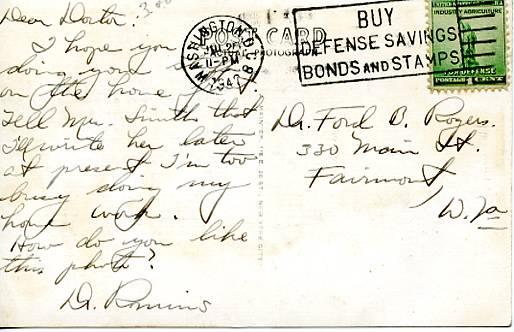 Dear Doctor:
I hope you
doing your
on the home
Tell Mrs. Smith that
I'll write her later
at present I'm too
busy doing my
home work.
How do you like
this photo?
Dr.
POST CARD
WASHINGTON, D.C.
11-PM
1942
BUY
DEFENSE SAVINGS
BONDS AND STAMPS
INDUSTRY AGRICULTURE
FOR DEFENSE
POSTAGE 1 CENT
Dr. Ford B. Rogers.
330 Main St.
Fairmont,
W. Va